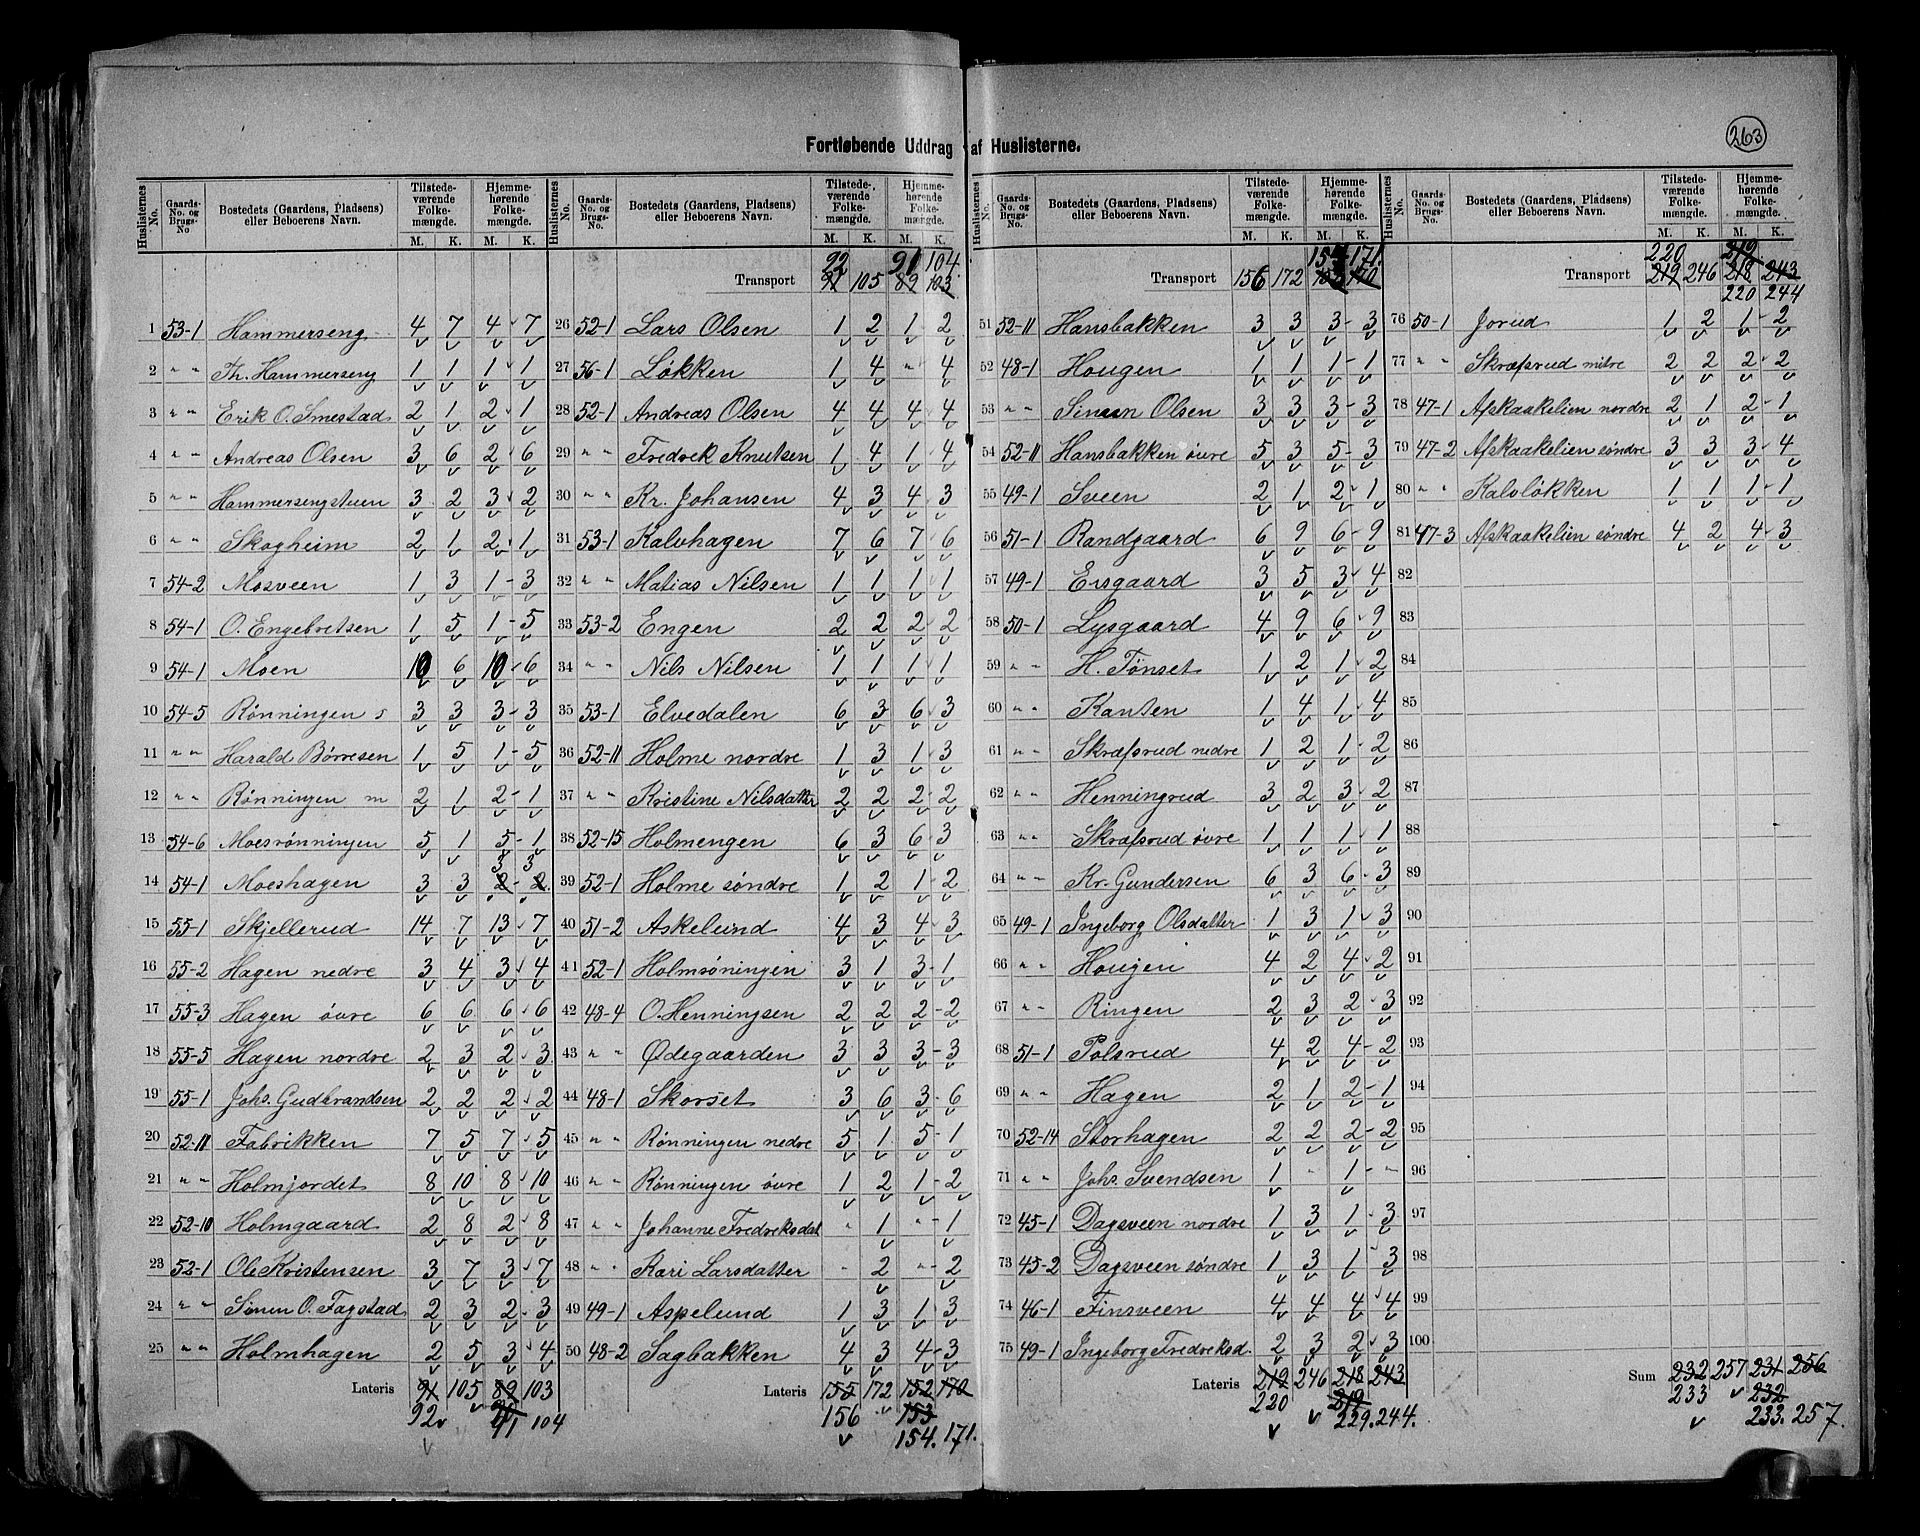 263
Fortløbende Uddrag af Huslisterne.
Huslisternes No. Gaards-No. og Brugs-No Bostedets (Gaardens, Pladsens) eller Beboerens Navn. Tilstedeværende Folkemængde. M. K. Hjemmehørende Folkemængde. M. K.
1 53-1 Hammerseng 4 7 4 7
2 " " Th. Hammerseng 1 1 1 1
3 " " Erik O. Smestad 2 1 2 1
4 " " Andreas Olsen 3 6 2 6
5 " " Hammersengstuen 3 2 3 2
6 " " Skogheim 2 1 2 1
7 54-2 Mosveen 1 3 1-3
8 54-1 O. Engebretsen 1 5 1-5
9 54-1 Moen 10 6 10 6
10 54-5 Rønningen s 3 3 3 3
11 " " Harald Børresen 1 5 1-5
12 " " Rønningen m 2 1 2-1
13 54-6 Moesrønningen 5 1 5-1
3 3
14 54-1 Moeshagen 3 3 2-2
15 55-1 Skjellerud 14 7 13 7
16 55-2 Hagen nedre 3 4 3 4
17 55-3 Hagen øvre 6 6 6 6
18 55-5 Hagen nordre 2 3 2 3
19 55-1 Johs. Gudbrandsen 2 2 2 2
20 52-11 Fabrikken 7 5 7 5
21 " " Holmjordet 8 10 8 10
22 52-10 Holmgaard 2 8 2 8
23 52-1 Ole Kristensen 3 7 3 7
24 " " Simen O. Fagstad 2 3 2 3
25 " " Holmhagen 2 5 3 4
Lateris 91 105 89 103
92 91 104
Huslisternes No. Gaards-No. og Brugs-No. Bostedets (Gaardens, Pladsens) eller Beboerens Navn. Tilstedeværende Folkemængde. M. K. Hjemmehørende Folkemængde. M. K.
92 91 104
Transport 91 105 89 103
26 52-1 Lars Olsen 1 2 1 2
27 56-1 Løkken 1 4 " 4
28 52-1 Andreas Olsen 4 4 4 4
29 " " Fredrek Knutsen 1 4 1 4
30 " " Kr. Johansen 4 3 4 3
31 53-1 Kalvhagen 7 6 7 6
32 " " Matias Nilsen 1 1 1 1
33 53-2 Engen 2 2 2 2
34 " " Nils Nilsen 1 1 1 1
35 53-1 Elvedalen 6 3 6 3
36 52-11 Holme nordre 1 3 1 3
37 " " Kristine Nilsdatter 2 2 2 2
38 52-15 Holmengen 6 3 6 3
39 52-1 Holme søndre 1 2 1-2
40 51-2 Askelund 4 3 4 3
41 52-1 Holmsøningen 3 1 3-1
42 48-4 O. Henningsen 2 2 2-2
43 " " Ødegaarden 3 3 3-3
44 48-1 Skorset 3 6 3-6
45 " " Rønningen nedre 5 1 5-1
46 " " Rønningen øvre 1 2 1-2
47 " " Johanne Fredreksdat " 1 " 1
48 " " Kari Larsdatter " 2 " 2
49 49-1 Aspelund 1 3 1 3
50 48-2 Sagbakken 4 3 4-3
Lateris 155 172 152 170
156 153
154. 171.
Huslisternes No. Gaards-No. og Brugs-No. Bostedets (Gaardens, Pladsens) eller Beboerens Navn. Tilstedeværende Folkemængde. M. K. Hjemmehørende Folkemængde. M. K.
154 171.
Transport 156 172 170
51 52-11 Hansbakken 3 3 3-3
52 48-1 Hougen 1 1 1-1
53 " " Simen Olsen 3 3 3-3
54 52-11 Hansbakken øvre 5 3 5-3
55 49-1 Sveen 2 1 2-1
56 51-1 Randgaard 6 9 6-9
57 49-1 Ersgaard 3 5 3 4
58 50-1 Lysgaard 4 9 6 9
59 " " H. Tønset 1 2 1 2
60 " " Kanten 1 4 1 4
61 " " Skræfsrud nedre 1 2 1-2
62 " " Henningrud 3 2 3 2
63 " " Skræfsrud øvre 1 1 1 1
64 " " Kr. Gundersen 6 3 6 3
65 49-1 Ingeborg Olsdatter 1 3 1 3
66 " " Hougen 4 2 4 2
67 " " Ringen 2 3 2 3
68 51-1 Polsrud 4 2 4-2
69 " " Hagen 2 1 2-1
70 52-14 Storhagen 2 2 2-2
71 " " Johs. Svendsen 1 " 1 "
72 45-1 Dagsveen nordre 1 3 1 3
73 45-2 Dagsveen søndre 1 3 1 3
74 46-1 Finsveen 4 4 4 4
75 49-1 Ingeborg Fredreksd. 2 3 2 3
Lateris 219 246 218 243
220 219
229. 244.
Huslisternes No. Gaards-No. og Brugs-No. Bostedets (Gaardens, Pladsens) eller Beboerens Navn. Tilstedeværende Folkemængde. M. K. Hjemmehørende Folkemængde. M. K.
220 219
Transport 219 246 218 243
220 244
76 50-1 Jorud 1 2 1-2
77 " " Skræfsrud mitre 2 2 2 2
78 47-1 Afskaakelien nordre 2 1 2-1
79 47-2 Afskaakelien søndre 3 3 3 4
80 " " Kalvløkken 1 1 1-1
81 47-3 Afskaakelien søndre 4 2 4 3
82
83
84
85
86
87
88
89
90
91
92
93
94
95
96
97
98
99
100
Sum 232 257 231 256
233 232
233. 257.